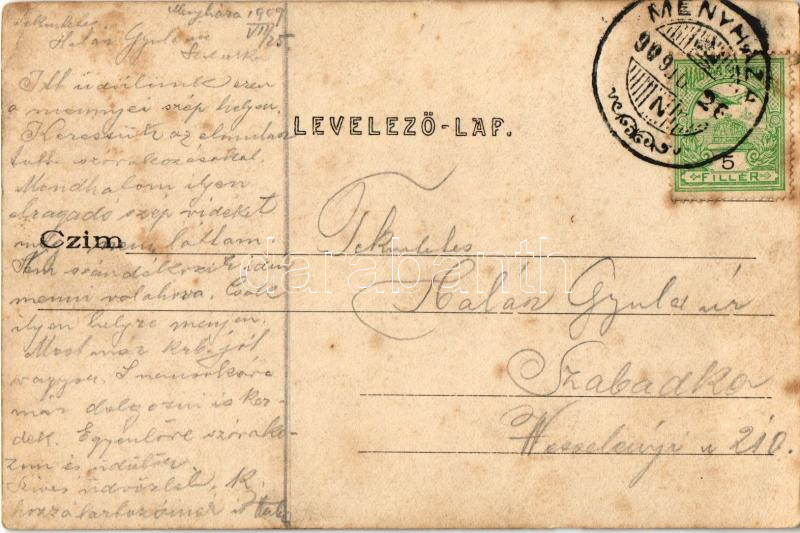 Menyháza 1909
VII/25.
Tekintetes
Kalár Gyula úr
Itt üdülünk ezen
a mennyei szép helyen.
Kerestük az elmulasz
tott szórakozásokat.
Mondhatom ilyen
elragadó szép vidéket
még nem láttam.
Nem szándékozik idén
menni valahova. Csak
ilyen helyre menjen.
Most már jól
vagyok.
már dolgozni is kez-
dek. Egyenlőre szóra
zom és üdülök.
Szives üdvözlet, K.
hozzátartozóinak is
LEVELEZŐ-LAP.
Czim
Tekintetes
Kalár Gyula úr
Szabadka
Wesselényi u 210.
MENYHÁZA
909
5
FILLÉR
darabanth